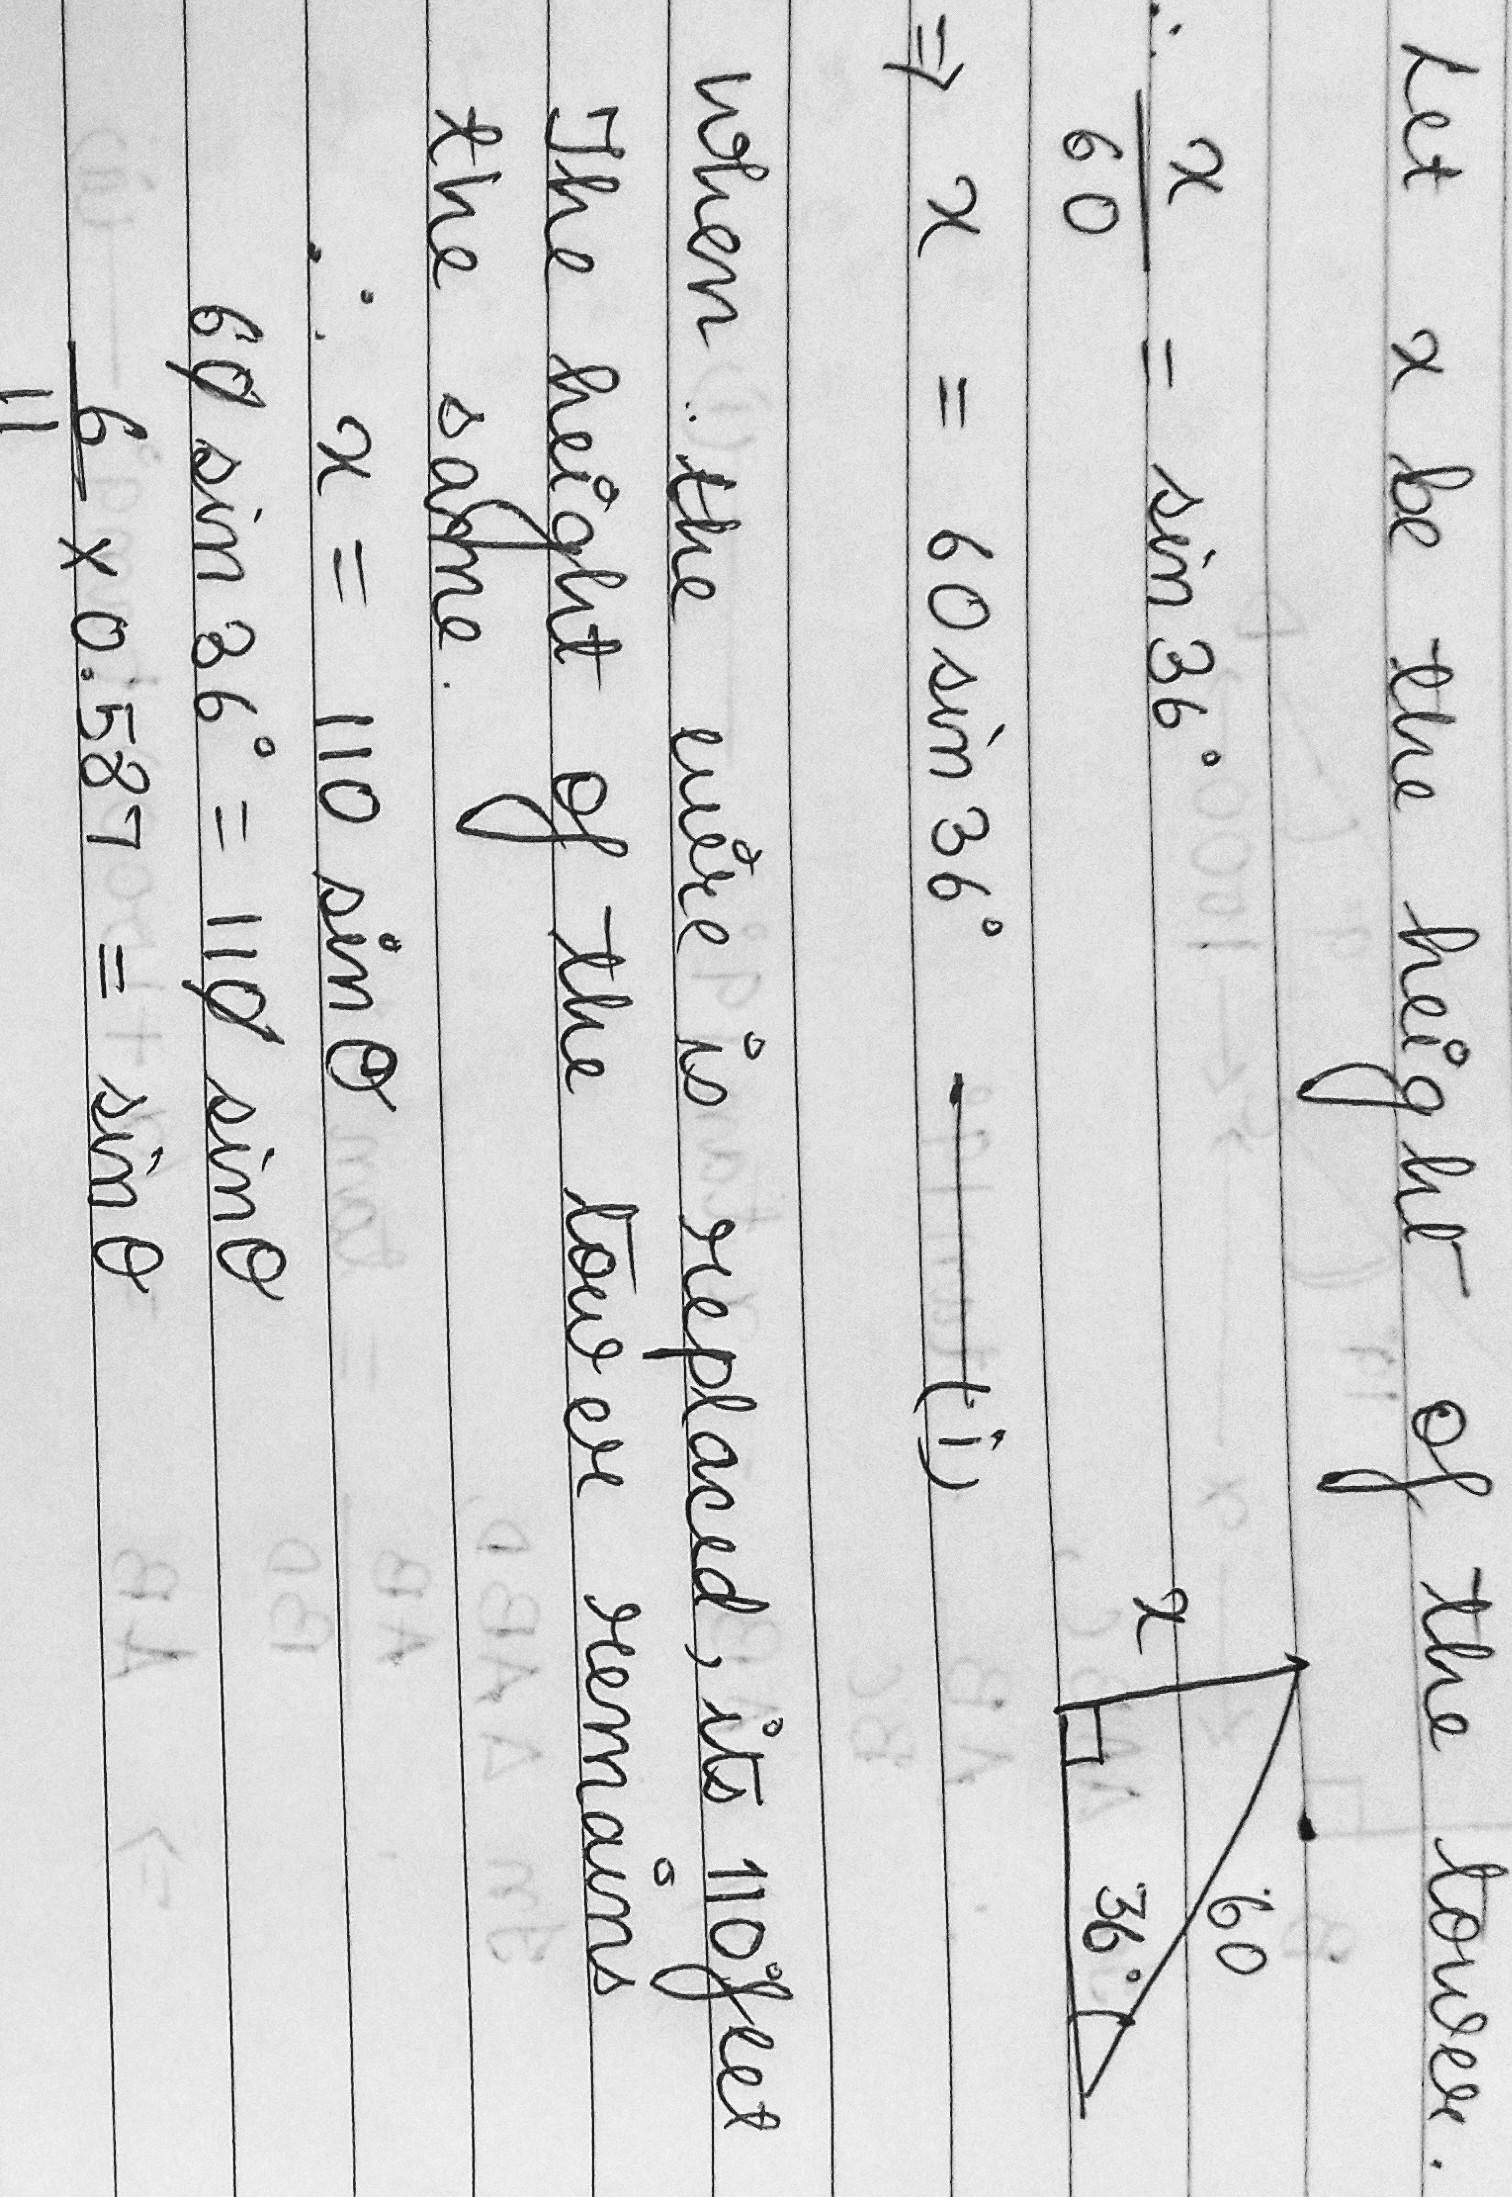 Let x be the height of the tower.
∴ x/60 = sin 36°
x
60
36°
⇒ x = 60 sin 36° — (i)
When the wire is replaced, its 110 feet
The height of the tower remains
the same.
∴ x = 110 sin θ
60 sin 36° = 110 sin θ
6/11 × 0.587 = sin θ